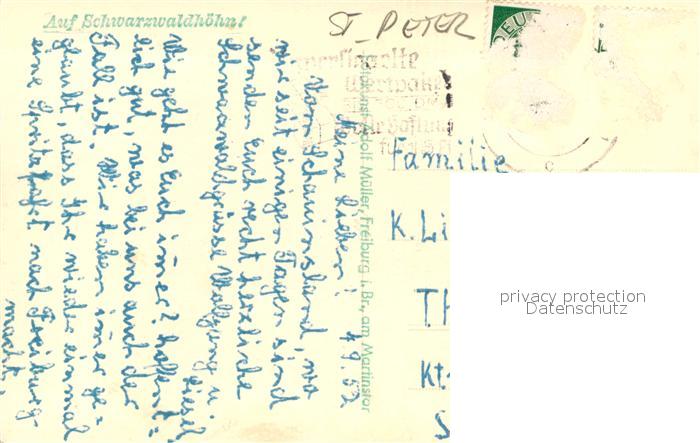 Auf Schwarzwaldhöhn!
ST. PETER
Wertpakete
Meine Lieben! 4.9.52
Vom Schauinsland, wo
wir seit einigen Tagen sind
senden Euch recht herzliche
Schwarzwaldgrüsse Wolfgang u.
Liesel
Wie geht es Euch immer? hoffent-
lich gut, was bei uns auch der
Fall ist. Wir haben immer ge-
glaubt, dass Ihr wieder einmal
eine Spritzfahrt nach Freiburg
macht.
Adolf Müller, Freiburg i. Br., am Martinstor
Familie
K. Li
T.
Kt.
S
privacy protection
Datenschutz